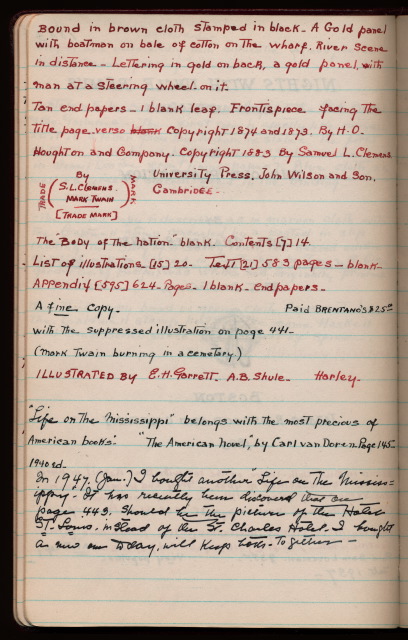 Bound in brown cloth stamped in black. A Gold panel
with boatman on bale of cotton on the wharf. River Scene
in distance - Lettering in gold on back, a gold panel, with
man at a steering wheel on it.
Tan end papers - 1 blank leaf. Frontispiece facing the
Title page verso blank Copyright 1874 and 1873. By H.O.
Houghton and Company. Copyright 1883 By Samuel L. Clemens
By
TRADE (S.L. Clemens MARK TWAIN) MARK
[TRADE MARK]
University Press. John Wilson and Son.
Cambridge -
The "Body of the Nation" blank. Contents [7] 14.
List of illustrations [15] 20. Text [21] 583 pages - blank -
Appendix [595] 624 - Pages - 1 blank - end papers -
A fine copy - Paid BRENTANO'S $25.00
with the suppressed illustration on page 441 -
(Mark Twain burning in a cemetary.)
ILLUSTRATED By E.H. Garrett. A.B. Shule - Harley -
"Life on the Mississippi" belongs with the most precious of
American books". "The American Novel", by Carl van Doren. Page 145 -
1940 ed -
In 1947 (Jan.) I bought another "Life on the Mississ=
ippi" - It has recently been discovered that on
page 443. Should be the picture of the Hotel
St. Louis. instead of the St. Charles Hotel. I bought
a new one today, will keep both - Together -